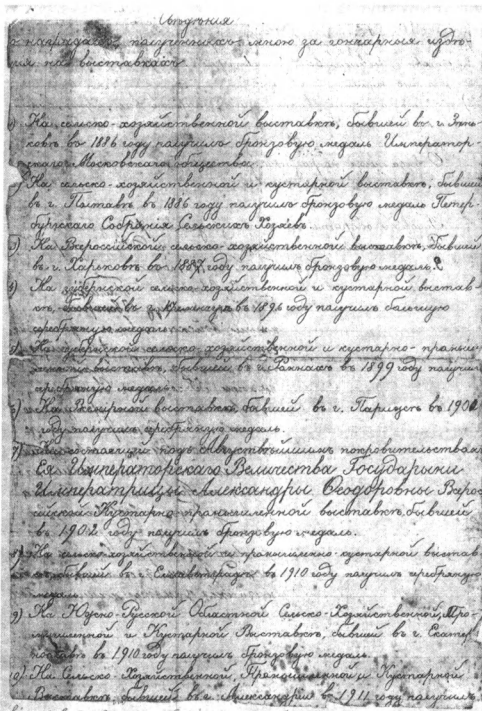 Свѣдѣнія
о наградахъ, полученныхъ мною за гончарныя издѣ-
лія на выставкахъ
На сельско-хозяйственной выставкѣ, бывшей въ г. Зѣнь-
ковѣ въ 1886 году получилъ бронзовую медаль Император-
скаго Московскаго общества.
На сельско-хозяйственной и кустарной выставкѣ, бывшей
въ г. Полтавѣ въ 1886 году получилъ бронзовую медаль Петер-
бургскаго Собранія Сельскихъ Хозяевъ.
3) На Всероссійской сельско-хозяйственной выставкѣ, бывшей
въ г. Харьковѣ въ 1887 году получилъ бронзовую медаль.
4) На губернской сельско-хозяйственной и кустарной выстав-
кѣ, бывшей въ г. въ 1896 году получилъ большую
серебряную медаль.
На сельско-хозяйственной и кустарно-промыш-
выставкѣ, бывшей въ г. Ромнахъ въ 1899 году получилъ
серебряную медаль.
6) На Всемірной выставкѣ, бывшей въ г. Парижѣ въ 190
году получилъ серебряную медаль.
7) На состоящей подъ Августѣйшимъ покровительствомъ
Ея Императорскаго Величества Государыни
Императрицы Александры Ѳеодоровны Всерос-
сійской Кустарно-промышленной выставкѣ, бывшей
въ 1902 году получилъ бронзовую медаль.
8) На сельско-хозяйственной и промышленно-кустарной выстав-
кѣ, бывшей въ г. Елисаветградѣ въ 1910 году получилъ серебряную
медаль.
9) На Южно-Русской Областной Сельско-Хозяйственной, Про-
мышленной и Кустарной Выставкѣ, бывшей въ г. Екатери-
въ 1910 году получилъ бронзовую медаль.
10) На Сельско-Хозяйственной, Промышленной и Кустарной
Выставкѣ, бывшей въ г. Александріи въ 1911 году получилъ